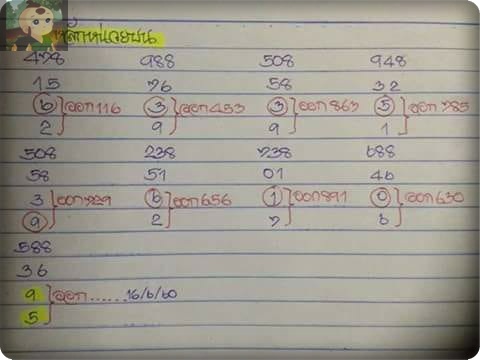 หลักหน่วยบน
478 988 508 948
15 76 58 32
6 ออก116 3 ออก453 3 ออก863 5 ออก785
2 9 9 1
508 238 738 688
58 51 01 46
3 ออก729 6 ออก656 1 ออก891 0 ออก630
9 2 7 6
588
36
9 ออก......16/6/60
5